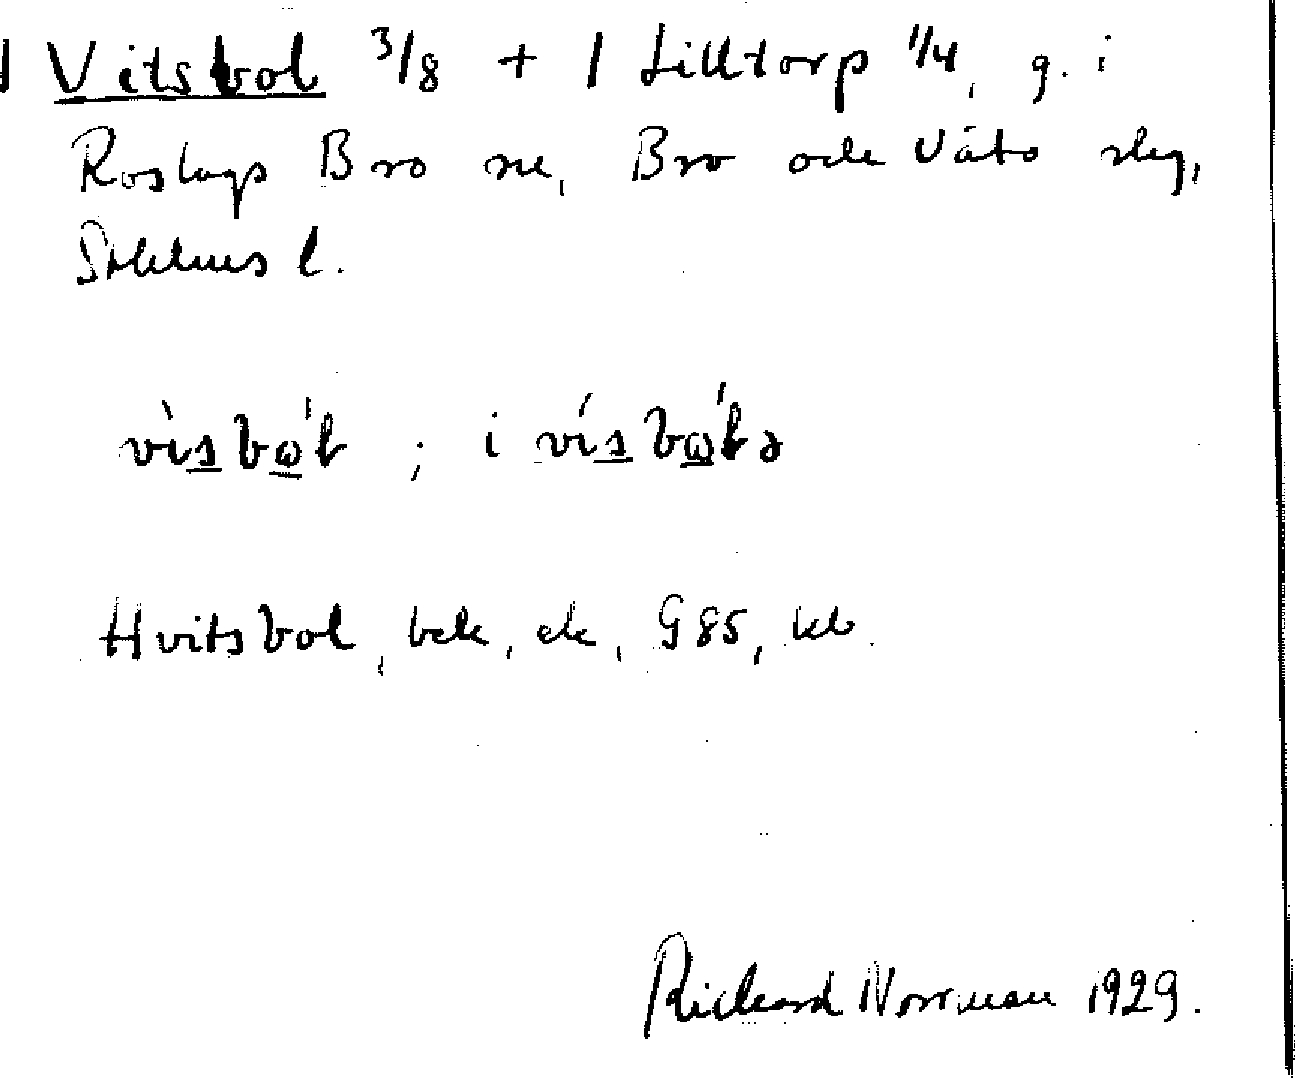 1 Vitsbol 3/8 + 1 Lilltorp 1/4, g. i
Roslags Bro sn, Bro och Vätö slg,
Sthlms l.
Hvitsbol, bek, ek, G 85, kb.
Rickard Norrman 1929.